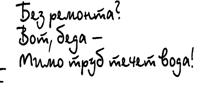 Без ремонта?
Вот, беда –
Мимо труб течет вода!